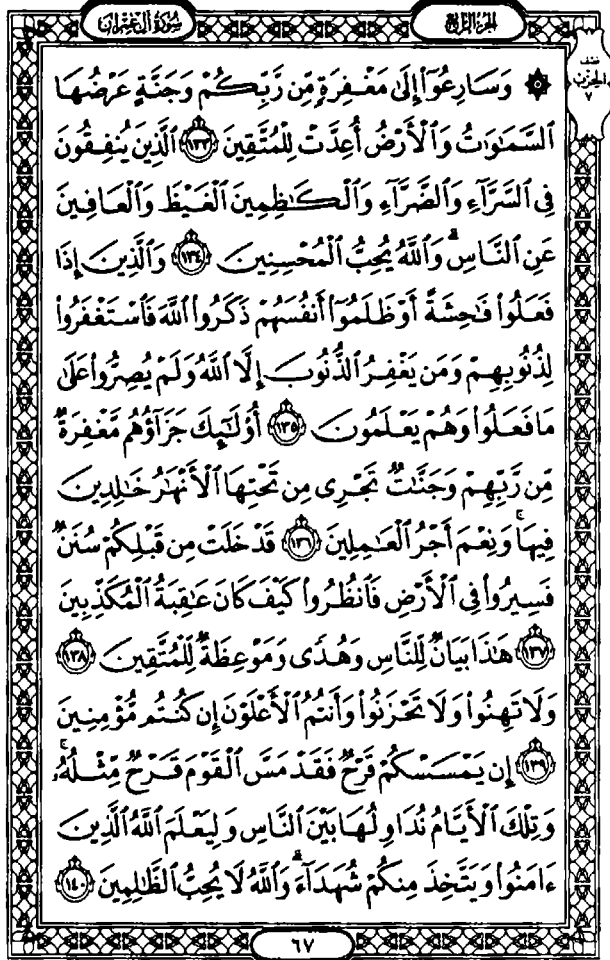 سُورَةُ آلِ عِمْرَانَ
الجُزْءُ الرَّابِعُ
نصف
الحزب
٧
۞ وَسَارِعُوٓا۟ إِلَىٰ مَغْفِرَةٍ مِّن رَّبِّكُمْ وَجَنَّةٍ عَرْضُهَا
ٱلسَّمَٰوَٰتُ وَٱلْأَرْضُ أُعِدَّتْ لِلْمُتَّقِينَ ﴿١٣٣﴾ ٱلَّذِينَ يُنفِقُونَ
فِى ٱلسَّرَّآءِ وَٱلضَّرَّآءِ وَٱلْكَٰظِمِينَ ٱلْغَيْظَ وَٱلْعَافِينَ
عَنِ ٱلنَّاسِ ۗ وَٱللَّهُ يُحِبُّ ٱلْمُحْسِنِينَ ﴿١٣٤﴾ وَٱلَّذِينَ إِذَا
فَعَلُوا۟ فَٰحِشَةً أَوْ ظَلَمُوٓا۟ أَنفُسَهُمْ ذَكَرُوا۟ ٱللَّهَ فَٱسْتَغْفَرُوا۟
لِذُنُوبِهِمْ وَمَن يَغْفِرُ ٱلذُّنُوبَ إِلَّا ٱللَّهُ وَلَمْ يُصِرُّوا۟ عَلَىٰ
مَا فَعَلُوا۟ وَهُمْ يَعْلَمُونَ ﴿١٣٥﴾ أُو۟لَٰٓئِكَ جَزَآؤُهُم مَّغْفِرَةٌ
مِّن رَّبِّهِمْ وَجَنَّٰتٌ تَجْرِى مِن تَحْتِهَا ٱلْأَنْهَٰرُ خَٰلِدِينَ
فِيهَا ۚ وَنِعْمَ أَجْرُ ٱلْعَٰمِلِينَ ﴿١٣٦﴾ قَدْ خَلَتْ مِن قَبْلِكُمْ سُنَنٌ
فَسِيرُوا۟ فِى ٱلْأَرْضِ فَٱنظُرُوا۟ كَيْفَ كَانَ عَٰقِبَةُ ٱلْمُكَذِّبِينَ
﴿١٣٧﴾ هَٰذَا بَيَانٌ لِّلنَّاسِ وَهُدًى وَمَوْعِظَةٌ لِّلْمُتَّقِينَ ﴿١٣٨﴾
وَلَا تَهِنُوا۟ وَلَا تَحْزَنُوا۟ وَأَنتُمُ ٱلْأَعْلَوْنَ إِن كُنتُم مُّؤْمِنِينَ
﴿١٣٩﴾ إِن يَمْسَسْكُمْ قَرْحٌ فَقَدْ مَسَّ ٱلْقَوْمَ قَرْحٌ مِّثْلُهُۥ ۚ
وَتِلْكَ ٱلْأَيَّامُ نُدَاوِلُهَا بَيْنَ ٱلنَّاسِ وَلِيَعْلَمَ ٱللَّهُ ٱلَّذِينَ
ءَامَنُوا۟ وَيَتَّخِذَ مِنكُمْ شُهَدَآءَ ۗ وَٱللَّهُ لَا يُحِبُّ ٱلظَّٰلِمِينَ ﴿١٤٠﴾
٦٧